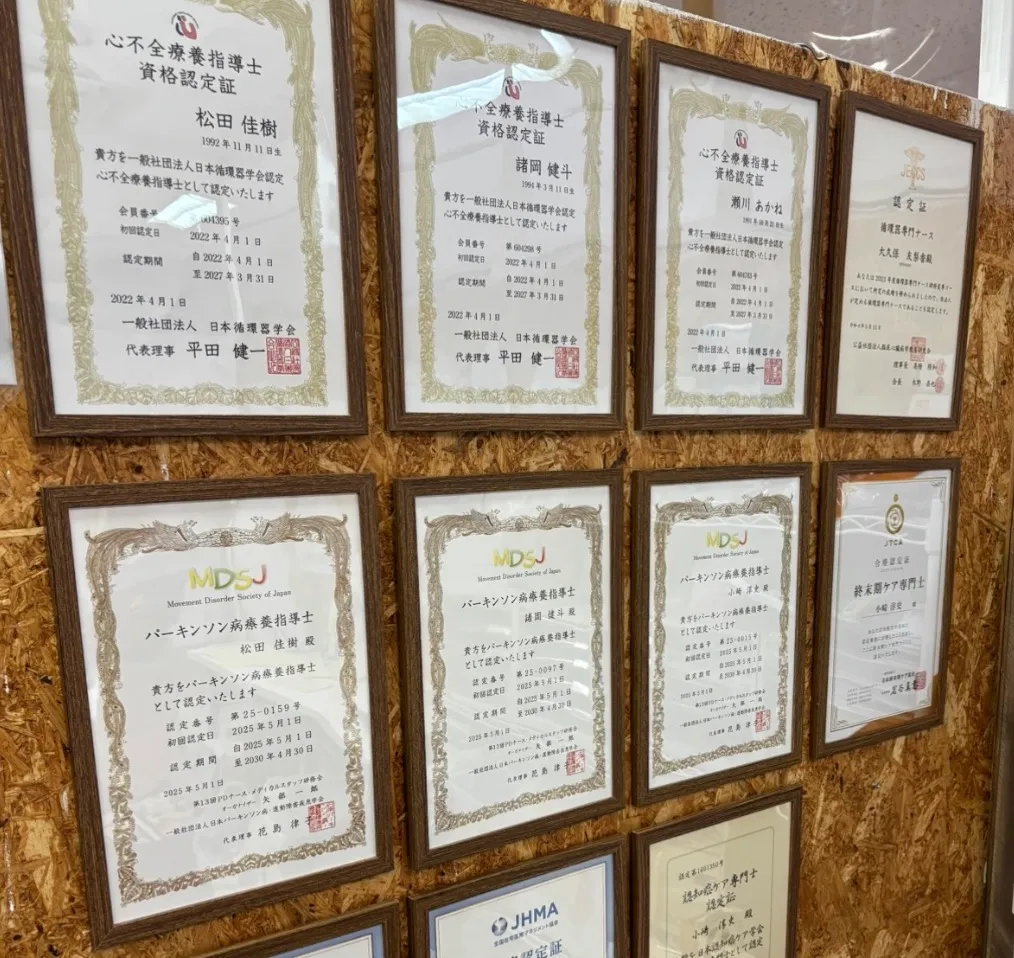 心不全療養指導士
資格認定証
松田 佳樹
1992年11月11日生
貴方を一般社団法人日本循環器学会認定
心不全療養指導士として認定いたします
会員番号 604395号
初回認定日 2022年4月1日
認定期間 自2022年4月1日
至2027年3月31日
2022年4月1日
一般社団法人 日本循環器学会
代表理事 平田 健一
心不全療養指導士
資格認定証
諸岡 健斗
1994年3月11日生
貴方を一般社団法人日本循環器学会認定
心不全療養指導士として認定いたします
会員番号 第604298号
初回認定日 2022年4月1日
認定期間 自2022年4月1日
至2027年3月31日
2022年4月1日
一般社団法人 日本循環器学会
代表理事 平田 健一
心不全療養指導士
資格認定証
瀬川 あかね
貴方を一般社団法人日本循環器学会認定
心不全療養指導士として認定いたします
会員番号
初回認定日 2022年4月1日
認定期間 自2022年4月1日
至2027年3月31日
2022年4月1日
一般社団法人 日本循環器学会
代表理事 平田 健一
認定証
循環器専門ナース
大久保 友梨香殿
理事長
会長
MDSJ
Movement Disorder Society of Japan
パーキンソン病療養指導士
松田 佳樹 殿
貴方をパーキンソン病療養指導士
として認定いたします
認定番号 第25-0159号
初回認定日 2025年5月1日
認定期間 自2025年5月1日
至2030年4月30日
2025年5月1日
第13回PDナース・メディカルスタッフ研修会
オーガナイザー 矢部 一郎
一般社団法人日本パーキンソン病・運動障害疾患学会
代表理事 花島 律子
MDSJ
Movement Disorder Society of Japan
パーキンソン病療養指導士
諸岡 健斗 殿
貴方をパーキンソン病療養指導士
として認定いたします
認定番号 第25-0097号
初回認定日 2025年5月1日
認定期間 自2025年5月1日
至2030年4月30日
2025年5月1日
第13回PDナース・メディカルスタッフ研修会
オーガナイザー 矢部 一郎
一般社団法人日本パーキンソン病・運動障害疾患学会
代表理事 花島 律子
MDSJ
Movement Disorder Society of Japan
パーキンソン病療養指導士
小崎 淳史 殿
貴方をパーキンソン病療養指導士
として認定いたします
認定番号 第25-0015号
初回認定日 2025年5月1日
認定期間 自2025年5月1日
至2030年4月30日
2025年5月1日
第13回PDナース・メディカルスタッフ研修会
オーガナイザー 矢部 一郎
一般社団法人日本パーキンソン病・運動障害疾患学会
代表理事 花島 律子
JTCA
合格認定証
終末期ケア専門士
小崎 淳史 殿
JHMA
認定証
認知症ケア専門士
認定証
小崎 淳史 殿